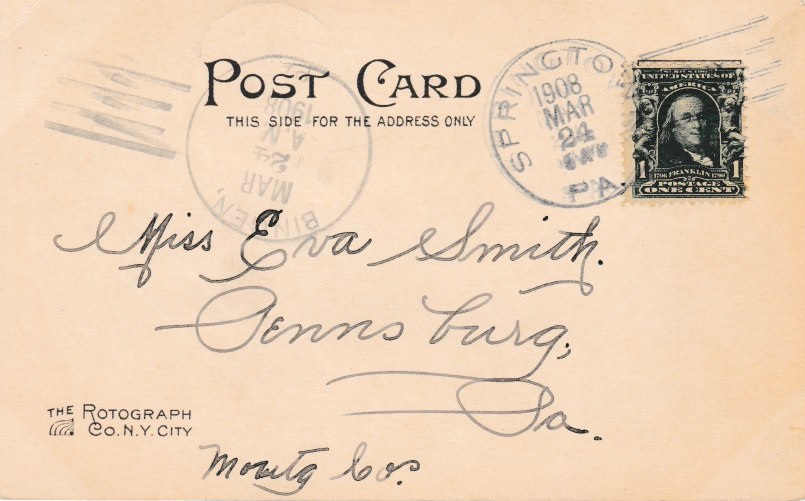 POST CARD
THIS SIDE FOR THE ADDRESS ONLY
BINGEN,
MAR
24
A.M
1908
SPRINGTO
1908
MAR
24
PA.
UNITED STATES OF
AMERICA
1 1
1706 FRANKLIN 1790
POSTAGE
ONE CENT
Miss Eva Smith.
Pennsburg,
Pa.
THE ROTOGRAPH
CO. N.Y. CITY
Montg Co.